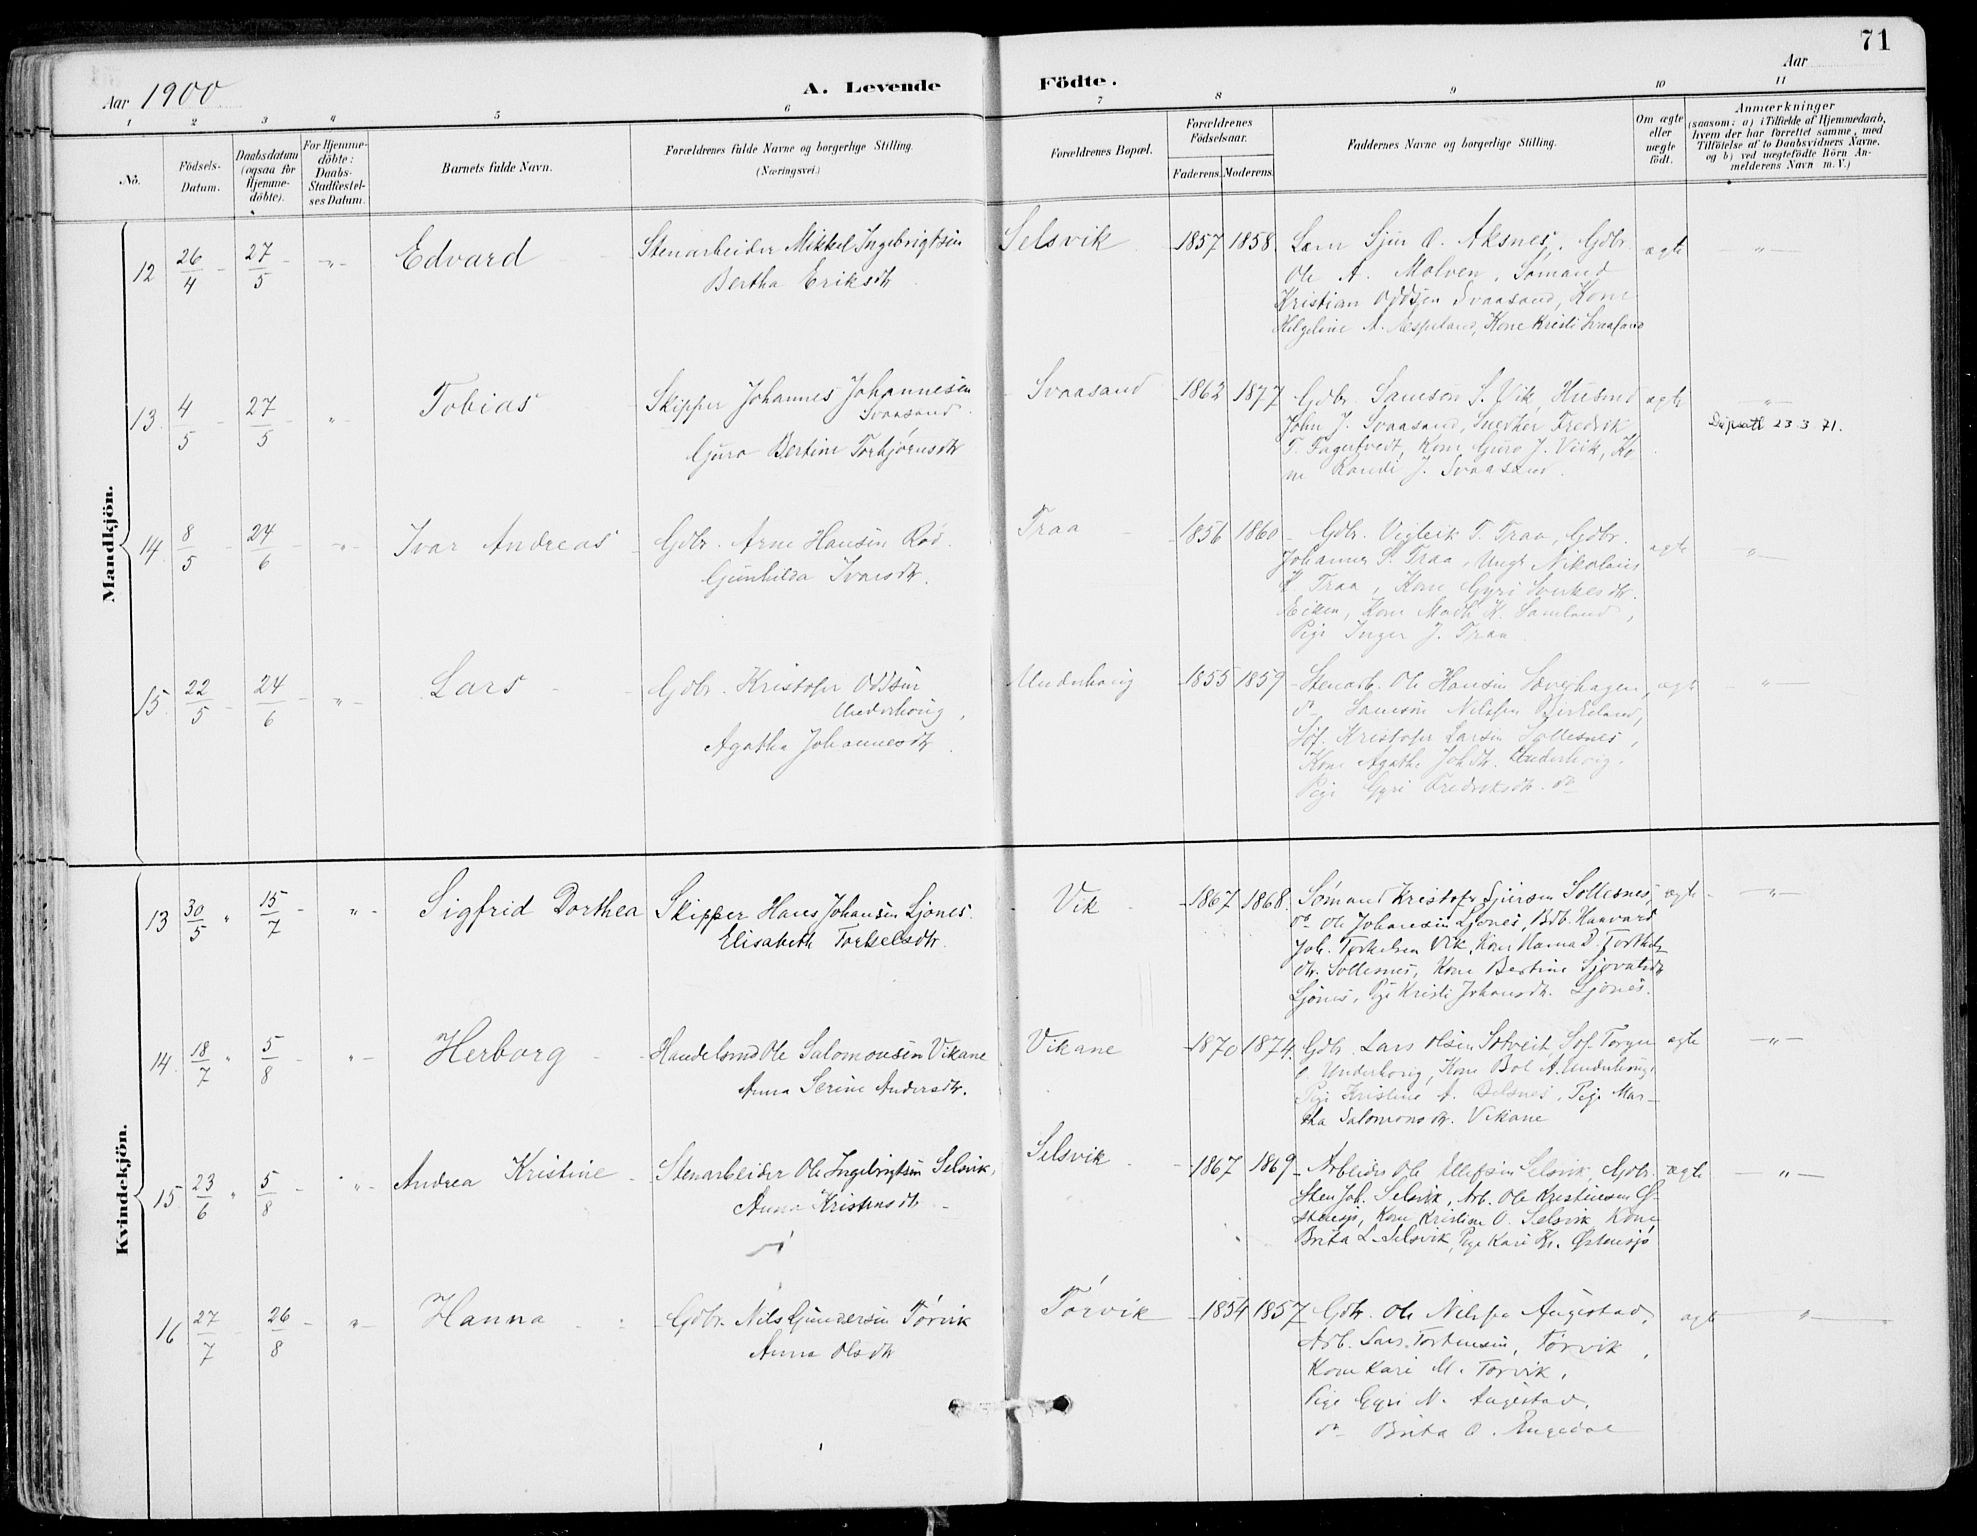 71
Aar 1900
A. Levende Födte.
Aar
1 2 3 4 5 6 7 8 9 10 11
No.
Födsels-Datum.
Daabsdatum (ogsaa for Hjemme-döbte).
For Hjemme-döbte: Daabs-Stadfæstel-ses Datum.
Barnets fulde Navn.
Forældrenes fulde Navne og borgerlige Stilling.
(Næringsvei.)
Forældrenes Bopæl.
Forældrenes Födselsaar.
Faderens. Moderens.
Faddernes Navne og borgerlige Stilling.
Om ægte eller uægte födt.
Anmærkninger
(saasom: a) i Tilfælde af Hjemmedaab,
hvem der har forrettet samme, med
Tilföielse af to Daabsvidners Navne,
og b) ved uægtefödte Börn An-
melderens Navn m. V.)
Mandkjön.
12 26/4 27/5 " Edvard Stenarbeider Mikkel Ingebrigtsen Selsvik 1857 1858 Sjur O. Aksnes, Gdbr. ægte "
Bertha Eriksdtr Ole A. Molven, Sömand
Kristian Oddsen Svaasand, Kone
Helgeline A. Kone Kristi
13. 4/5 27/5 " Tobias Skipper Johannes Johannesen Svaasand 1862 1877 Gdbr. Samson S. Vik, Husmd ægte "
Svaasand John J. Svaasand, Fredrik Dåpsatt 23 3 71.
Guro Bertine Torbjörnsdtr T. Kone Guro J. Viik, Ko
ne Randi J. Svaasand.
14. 8/5 24/6 " Ivar Andreas Gdbr. Arne Hansen Rød. Traa 1856 1860 Gdbr. Vigleik T. Traa, Gdbr. ægte "
Gunhilda Ivarsdtr. Johannes S. Traa, Ungk Nikolaus
K Traa, Kone Gyri
Kone
Pige Inger J. Traa
15. 22/5 24/6 " Lars Gdbr. Kristofer Oddsen Underhaug 1855 1859 Stenarb. Ole Hansen ægte "
Underhaug, do Samson Nilsen Birkeland,
Agatha Johannesdtr. Kristofer Larsen Sollesnes,
Kone Agathe Johdtr. Underhaug,
Pige Gyri Fredriksdtr. do
Kvindekjön.
13 30/5 15/7 " Sigfrid Dorthea Skipper Hans Johansen Ljones. Vik 1867 1868. Sømand Kristofer Sjursen Sollesnes, ægte "
Elisabeth Torkelsdtr. do Ole Johansen Ljones, Haavard
Joh. Torkelsen Vik, Kone Hanna D.
dtr. Sollesnes, Kone Bertine
Ljönes, Pige Kristi Johansdtr. Ljones.
14. 18/7 5/8 " Herborg Handelsmd Ole Salomonsen Vikane Vikane 1870 1874. Gdbr. Lars Olsen Sotveit, ægte "
Anna Serine Andersdtr. Underhaug, Kone Bol A. Underhaug,
Pige Kristine A. Pige Mar-
tha Salomonsdtr. Vikane
15 23/6 5/8 " Andrea Kristine Stenarbeider Ole Ingebrigtsen Selsvik, Selsvik 1867 1869 Arbeider Ole Ellefsen Selsvik, Gdbr. ægte "
Anna Kristensdtr Sten Joh. Selsvik, Arb. Ole Kristensen Ø-
stensjö, Kone Kristine O. Selsvik, Kone
Brita L. Selsvik, Pige Kari Kr. Østensjö
16 27/7 26/8 " Hanna Gdbr. Nils Gundersen Törvik Törvik 1854 1857 Gdbr. Ole Nilsen Augestad, ægte "
Anna Olsdtr Arb. Lars Torvik,
Kone Kari M. Torvik,
Pige Gyri N. Augestad,
do Brita O.